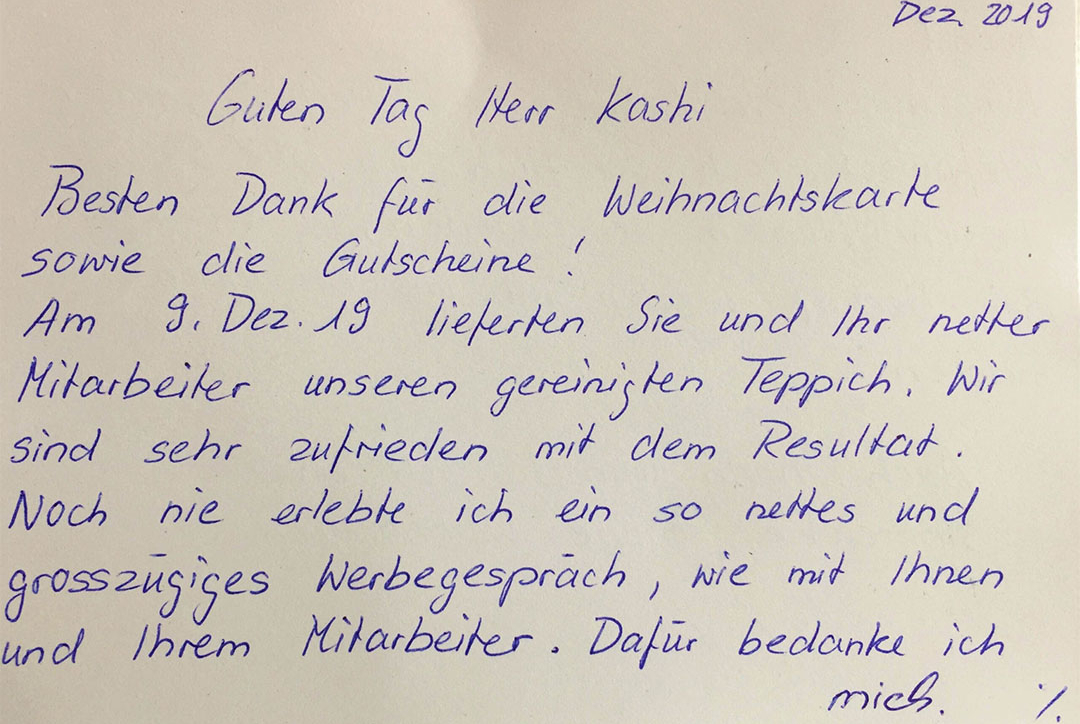 Dez. 2019
Guten Tag Herr Kashi
Besten Dank für die Weihnachtskarte
sowie die Gutscheine!
Am 9. Dez. 19 lieferten Sie und Ihr netter
Mitarbeiter unseren gereinigten Teppich. Wir
sind sehr zufrieden mit dem Resultat.
Noch nie erlebte ich ein so nettes und
grosszügiges Werbegespräch, wie mit Ihnen
und Ihrem Mitarbeiter. Dafür bedanke ich
mich. ./.